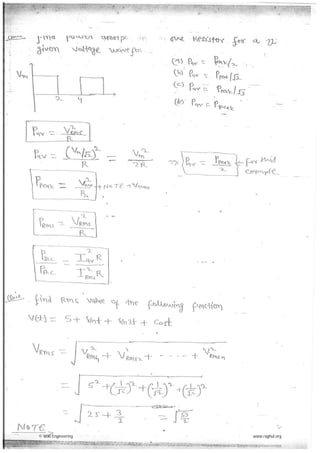 Ques Find power absorbe in the Resistor for a
given voltage wavefo
(a) Pav = Peak/2
(b) Pav = Peak/√2
(c) Pav = Peak/√3
(d) Pav = Ppeak
Vm
2 4
Pav = V²rms / R
Pav = (Vm/√2)² / R = Vm² / 2R ⇒ Pav = Ppeak / 2 for this example
Ppeak = / R → NOTE → Vmax
Prms = V²rms / R
Pd.c / Pa.c = I²av R / I²rms R
Ques find Rms value of the following function
V(t) = 5 + Sint + Sin2t + Cost
Vrms = √ V²rms1 + V²rms2 + - - - - + V²rmsn
= √ 5² + (1/√2)² + (1/√2)² + (1/√2)²
= √ 25 + 3/2 = √ 53/2
NOTE
© WiKi Engineering
www.raghul.org